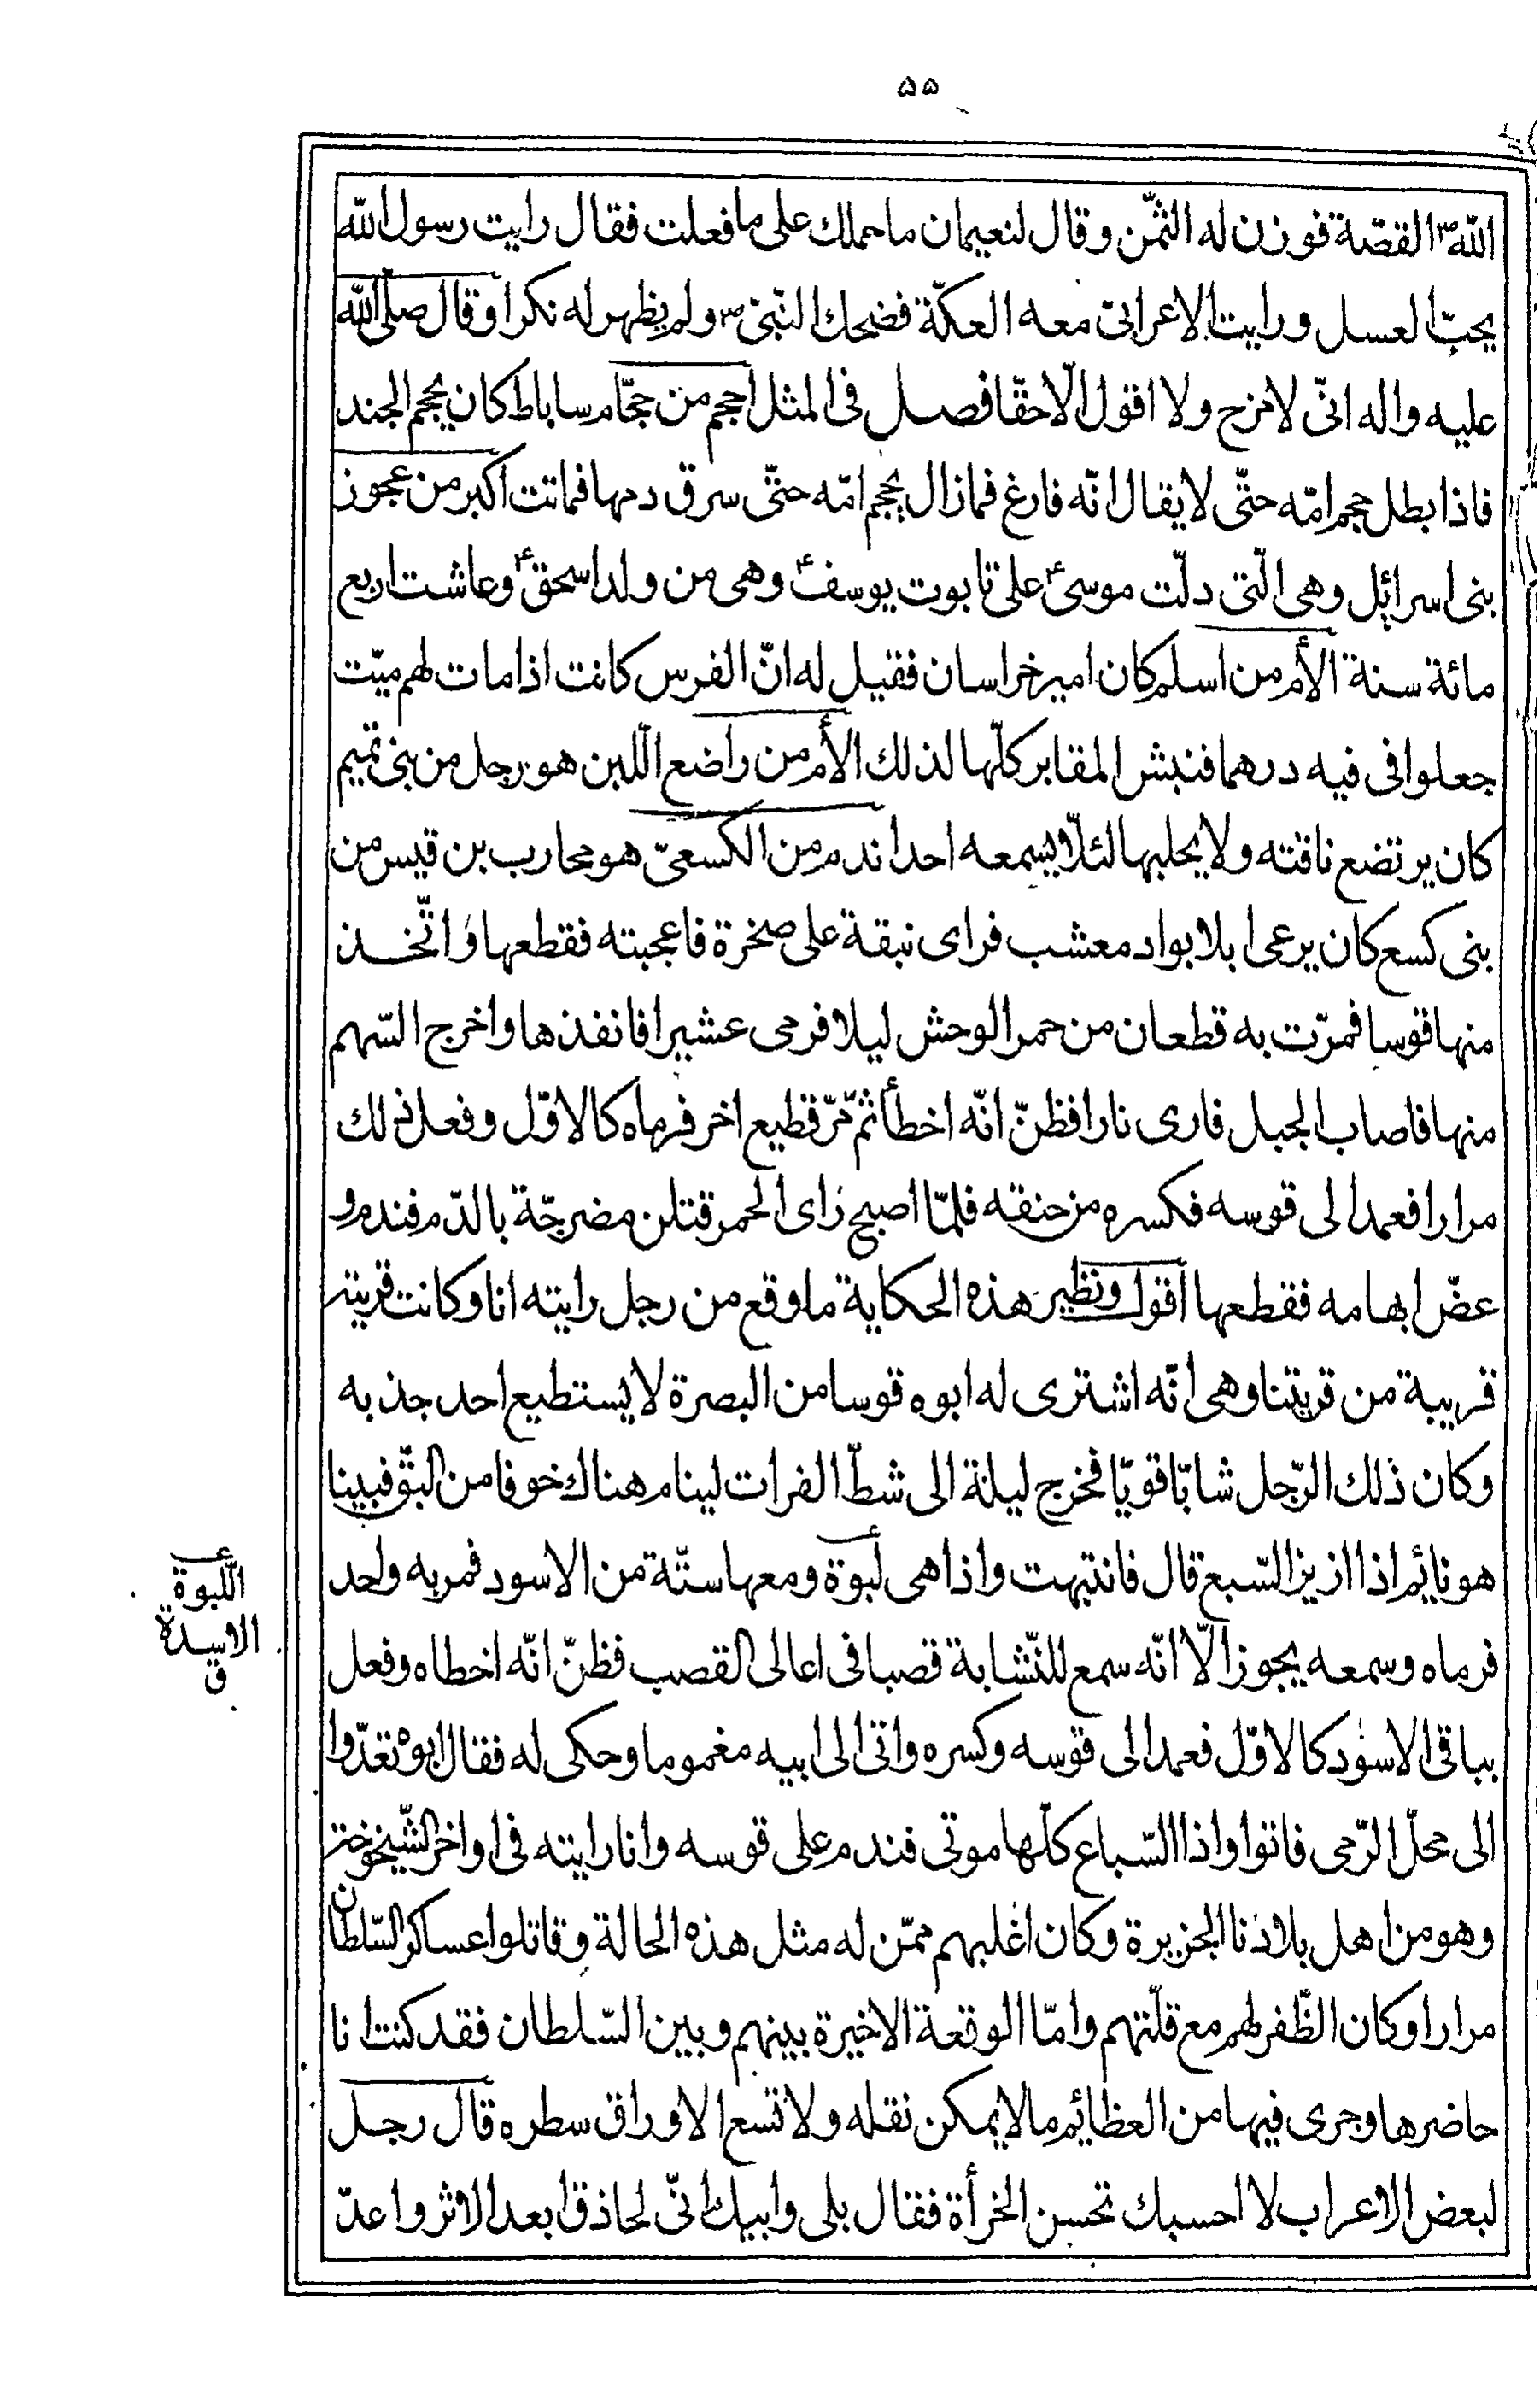 ۵۵
الله ص القصّة فوزن له الثمّن وقال لنعيمان ما حملك على ما فعلت فقال رايت رسول الله
يحبّ العسل ورايت الاعرابىّ معه العكّة فضحك النّبىّ ص ولم يظهر له نكرا وقال صلّى الله
عليه واله انّى لامزح ولا اقول الّا حقّا فصل فى المثل احجم من حجّام ساباط كان يحجم الجند
فاذا بطل حجم امّه حتّى لا يقال انّه فارغ فمازال يحجم امّه حتّى سرق دمها فماتت اكبر من عجوز
بنى اسرائيل وهى الّتى دلّت موسى ع على تابوت يوسف ع وهى من ولد اسحق ع وعاشت اربع
مائة سنة الأم من اسلم كان امير خراسان فقيل له انّ الفرس كانت اذا مات لهم ميّت
جعلوا فى فيه درهما فنبش المقابر كلّها لذلك الأم من راضع اللبن هو رجل من بنى تميم
كان يرتضع ناقته ولا يحلبها لئلّا يسمعه احد اندم من الكسعىّ هو محارب بن قيس من
بنى كسع كان يرعى ابلا بواد معشب فراى نبقة على صخرة فاعجبته فقطعها واتّخذ
منها قوسا فمرّت به قطعان من حمر الوحش ليلا فرمى عشيرا فانفذها واخرج السّهم
منها فاصاب الجبل فارى نارا فظنّ انّه اخطأ ثمّ مرّ قطيع اخر فرماه كالاوّل وفعل ذلك
مرارا فعمد الى قوسه فكسره من حنقه فلمّا اصبح راى الحمر قتلن مضرجّة بالدّم فندم و
عضّ ابهامه فقطعها اقول ونظير هذه الحكاية ما وقع من رجل رايته انا وكانت قريته
قريبة من قريتنا وهى انّه اشترى له ابوه قوسا من البصرة لا يستطيع احد جذبه
وكان ذلك الرّجل شابّا قويّا فخرج ليلة الى شطّ الفرات لينام هناك خوفا من البقّ فبينا
هو نائم اذا ازيز السّبع قال فانتبهت واذا هى لبوة ومعها ستّة من الاسود فمر به واحد
فرماه وسمعه يجوز الّا انّه سمع للنّشابة قصبا فى اعالى القصب فظنّ انّه اخطاه وفعل
بباقى الاسود كالاوّل فعمد الى قوسه وكسره واتى الى ابيه مغموما وحكى له فقال ابوه تعدّوا
الى محلّ الرّمى فاتوا واذا السّباع كلّها موتى فندم على قوسه وانا رايته فى اواخر الشّيخوخة
وهو من اهل بلادنا الجزيرة وكان اغلبهم ممّن له مثل هذه الحالة وقاتلوا عساكر السّلطان
مرارا وكان الظّفر لهم مع قلّتهم وامّا الوقعة الاخيرة بينهم وبين السّلطان فقد كنت انا
حاضرها وجرى فيها من العظائم ما لا يمكن نقله ولا تسع الاوراق سطره قال رجل
لبعض الاعراب لا احسبك تحسن الخرأة فقال بلى وابيك انّى لحاذق ابعد الاثر واعدّ
اللّبوة
الاسدة
ق